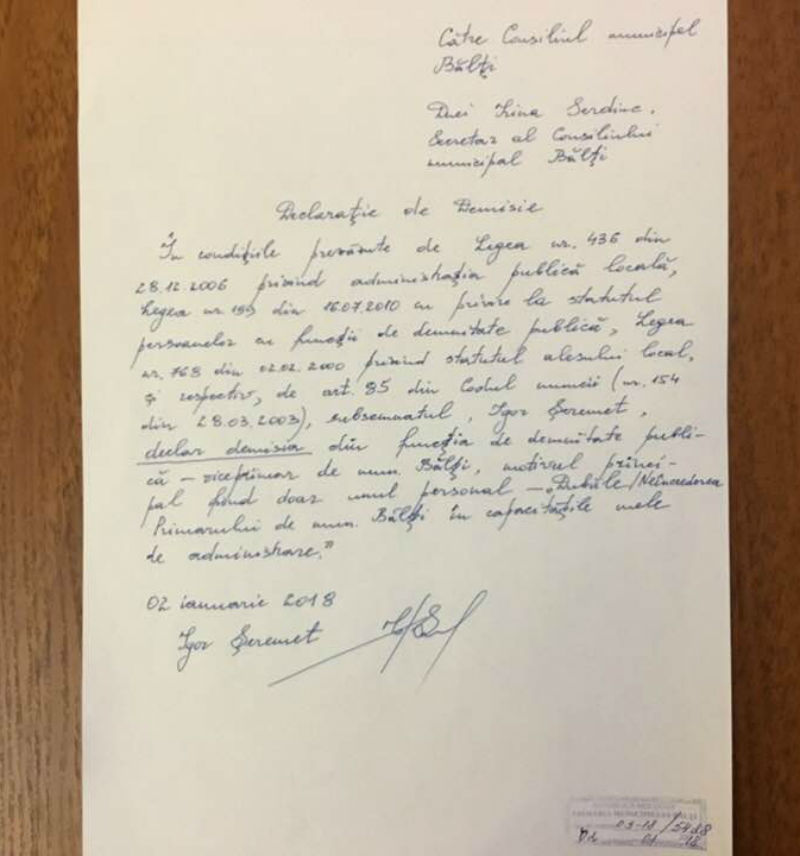 Către Consiliul municipal
Bălți
Dnei Irina Serdiuc,
Secretar al Consiliului
municipal Bălți
Declarație de Demisie
În condițiile prevăzute de Legea nr. 436 din
28.12.2006 privind administrația publică locală,
Legea nr. 199 din 16.07.2010 cu privire la statutul
persoanelor cu funcții de demnitate publică, Legea
nr. 768 din 02.02.2000 privind statutul alesului local,
și respectiv, de art. 85 din Codul muncii (nr. 154
din 28.03.2003), subsemnatul, Igor Șeremet,
declar demisia din funcția de demnitate publi-
că – viceprimar de mun. Bălți, motivul princi-
pal fiind doar unul personal – „Dubiile/Neîncrederea
Primarului de mun. Bălți în capacitățile mele
de administrare."
02 ianuarie 2018
Igor Șeremet
03-18/5488